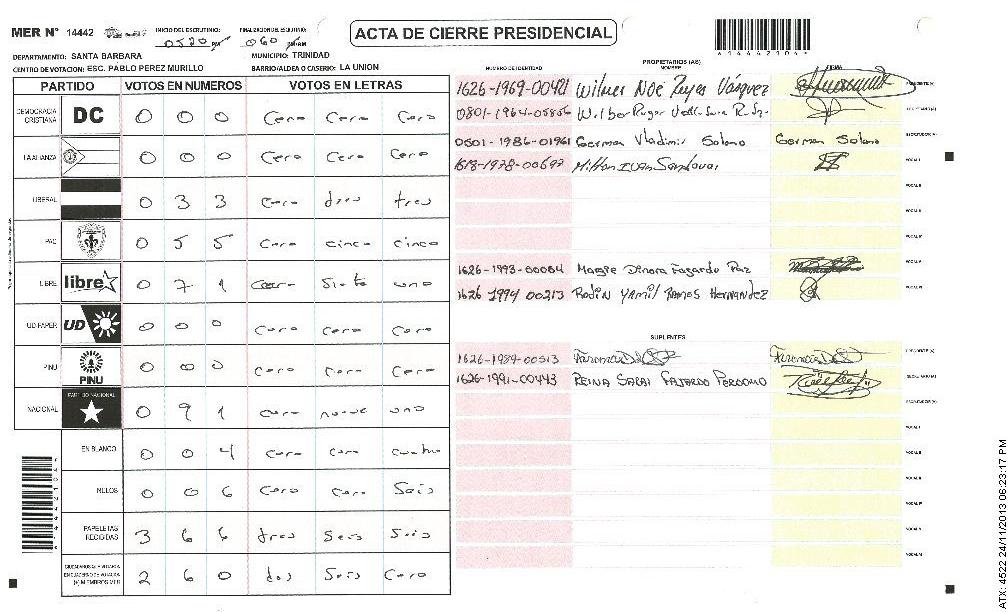 MER N° 14442
INICIO DEL ESCRUTINIO: 0520 PM
FINALIZACION DEL ESCRUTINIO: 060
ACTA DE CIERRE PRESIDENCIAL
DEPARTAMENTO: SANTA BARBARA MUNICIPIO: TRINIDAD
CENTRO DE VOTACION: ESC. PABLO PEREZ MURILLO BARRIO/ALDEA O CASERIO: LA UNION
PARTIDO VOTOS EN NUMEROS VOTOS EN LETRAS
DEMOCRACIA CRISTIANA DC 0 0 0 Cero Cero Cero
LA ALIANZA 0 0 0 Cero Cero Cero
LIBERAL 0 3 3 Cero tres tres
PAC 0 5 5 Cero cinco cinco
LIBRE libre 0 7 1 Cero Siete uno
UD-FAPER UD 0 0 0 Cero Cero Cero
PINU PINU 0 0 0 Cero Cero Cero
NACIONAL PARTIDO NACIONAL 0 9 1 Cero nueve uno
EN BLANCO 0 0 4 Cero Cero Cuatro
NULOS 0 0 6 Cero Cero Seis
PAPELETAS RECIBIDAS 3 6 6 tres Seis Seis
2 6 0 dos Seis Cero
PROPIETARIOS (AS)
NUMERO DE IDENTIDAD NOMBRE FIRMA
1626-1969-00421 Wilmer Noe Reyes Vásquez PRESIDENTE (A)
0801-1964-05856 Wilber Roger
0501-1986-01961 German Vladimir Solano German Solano
1618-1978-00697 Milton IVAN Sandoval VOCAL I
VOCAL II
1626-1993-00064 Magie Dinora Fajardo Paz
1626 1994 00213 Rodin YAMIL RAMOS HERNANDEZ
SUPLENTES
1626-1989-00513
1626-1991-00443 REINA SARAI FAJARDO PERDOMO
ATX: 4522 24/11/2013 06:23:17 PM